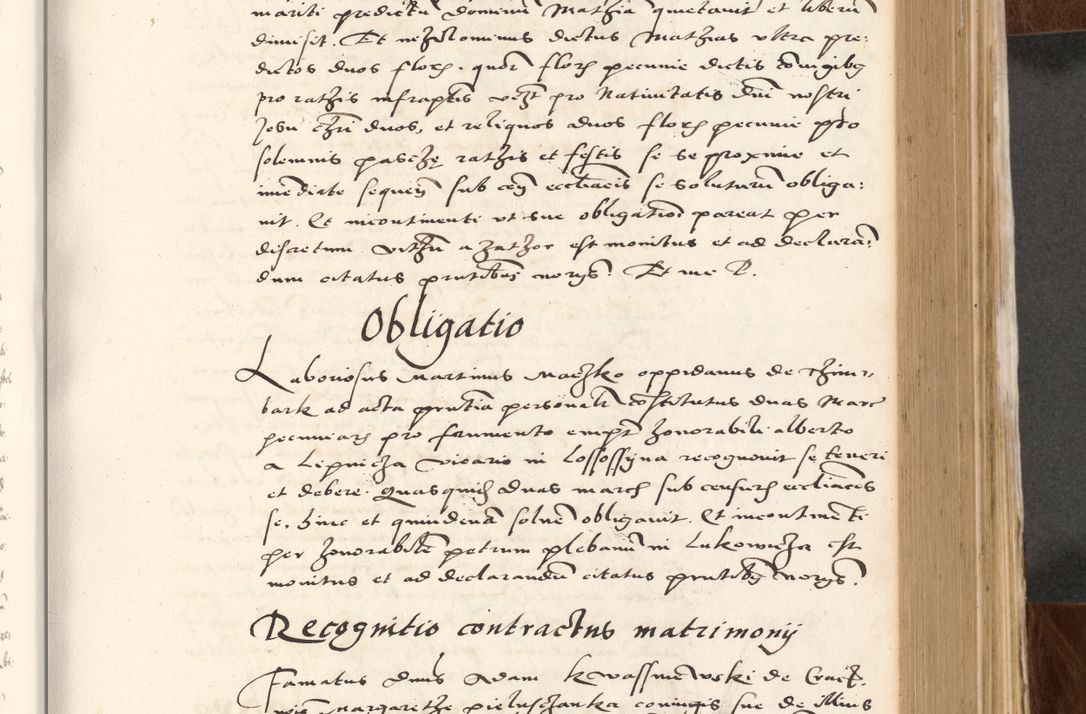 mariti predictum dominum Mathia quietavit et liberum
dimisit. Et nihilominus dictus Mathias ultra pre:
dictos duos flor. flor pecunie dictis coniugibus
pro rathis infrascriptis pro Nativitatis dni nostri
Jesu chri duos, et reliquos duos flor pecunie pro
solemnis pasche rathis et festis se se proxime et
imediate sequen sub cen ecclesiacis se soluturum obliga:
vit. Et incontinenti ut sue obligationi pareat per
discretum a est monitus et ad declaran:
dum citatus prntibus Et me
Obligatio
Laboriosus Martinus Maczko oppidanus de
bark ad acta prntia personalr constitutus duas Marc
pecuniar pro frumento empt honorabili alberto
a Lipnicza vicario in Lossossyna recognovit se teneri
et debere. Quasquid duas march sub censurs eccliacis
se. hinc et quindenam solvere obligavit. Et incontinenti
per honorabilem petrum plebanum in Lukowicza est
monitus et ad declarandum citatus prntibus
Recognitio contractus matrimonij
Famatus dnus Adam Kwassniewski de Crac
Margarethe pieluschanka coniugis sue de illius